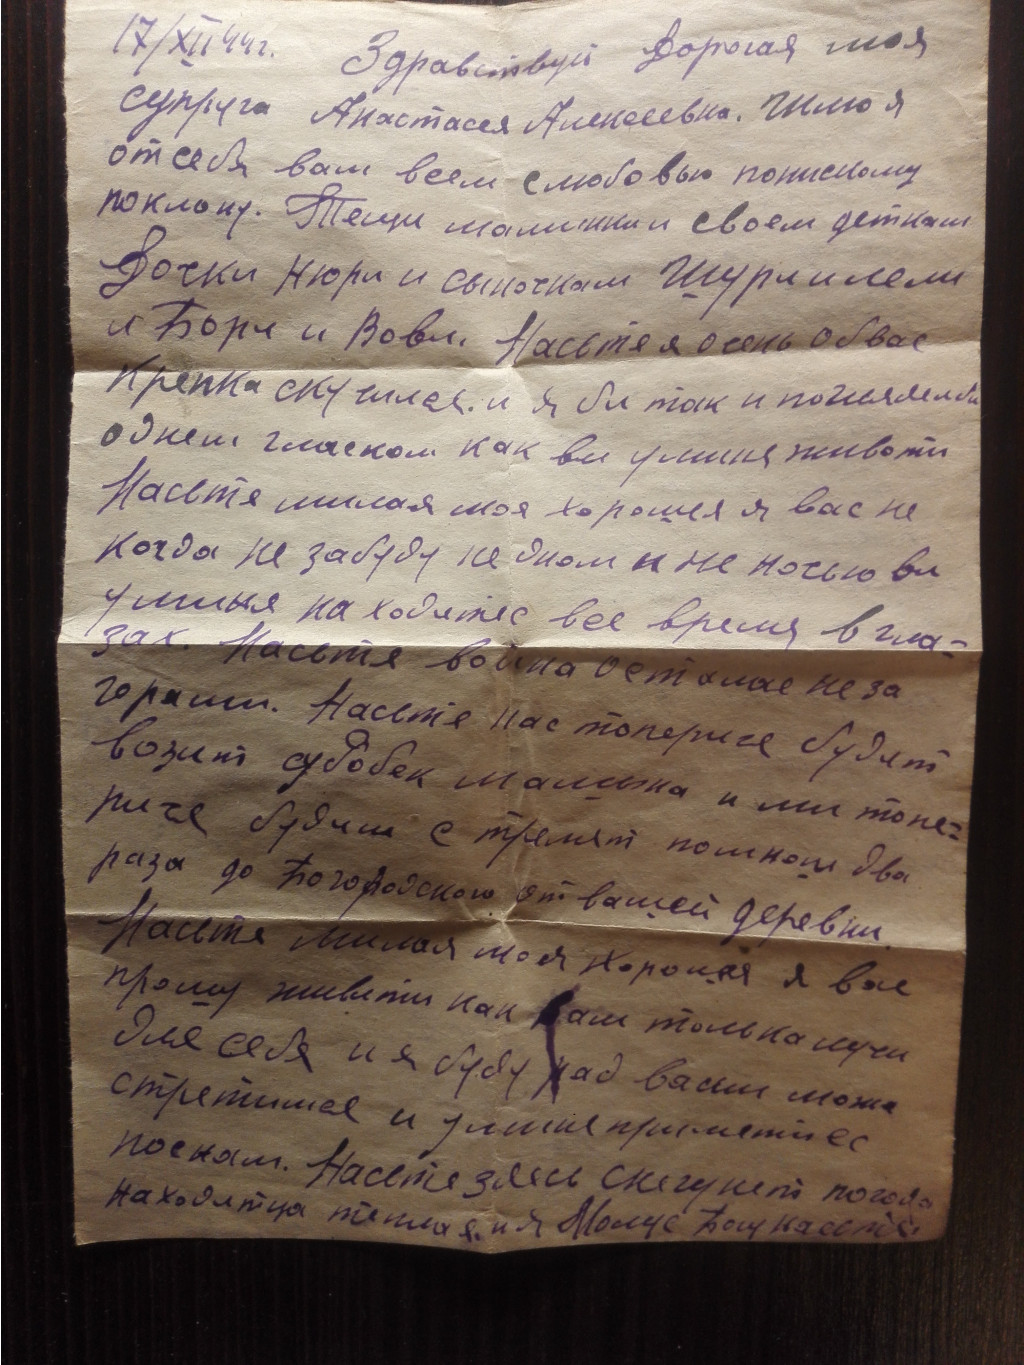 17/XII 44 г. Здравствуй Дорогая моя
супруга Анастасея Алексеевна. Шлю я
от себя вам всем с любовью понискому
поклону. Теще мамински своем деткам
Дочки Нюри и сыночкам Шури и лели
и Бори и Вови. Насьтя я очень об вас
крепка скучился. и я би так и
однем гласком как ви уминя животи
Насьтя милая моя хорошея я вас не
когда не забуду не дном и не ночью ви
уминя находятес все время в гла-
зах. Насьтя война осталас не за
горами. Насьтя нас топериче будят
возит студобек машина и ми топе-
риче будим с тремят помном два
раза до Богородского от вашей деревни.
Насьтя милая моя хорошея я вас
прошу живити как вам толька лучи
для себя и я буду рад вами можа
стретимся и уминя приметиес
поскам. Насьтя здесь снегу нет погода
находятца теплая. и я Молус Богу насьтя.